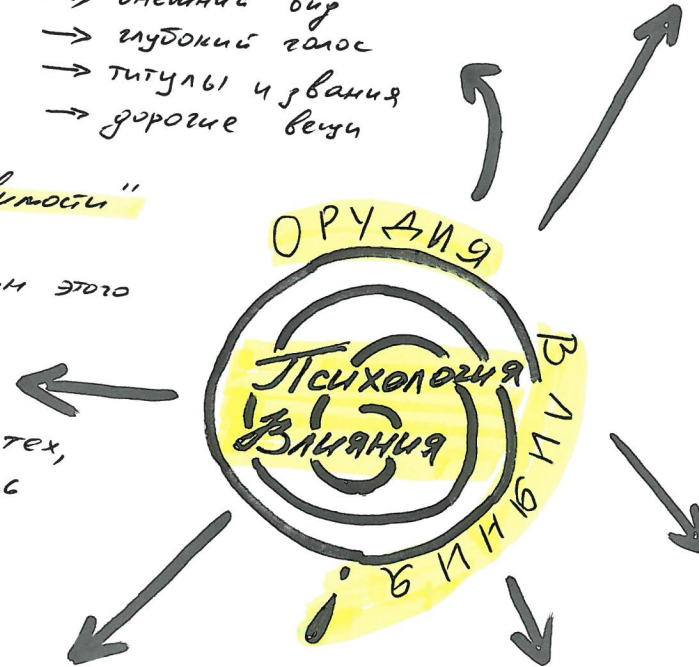 → внешний вид
→ глубокий голос
→ титулы и звания
→ дорогие вещи
этого
тех,
ОРУДИЯ
ВЛИЯНИЯ!
Психология
Влияния